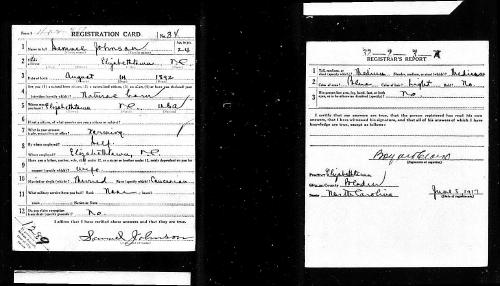 REGISTRATION CARD No. 34
1 Name in full Samuel Johnson Age, in yrs. 24
2 Elizabethtown N.C.
3 Date of birth August 14 1892
4 Are you (1) a natural-born citizen, (2) a naturalized citizen, (3) an alien, (4) or have you declared your intention (specify which)? Natural born
5 Where were you born? Elizabethtown N.C. USA
6 If not a citizen, of what country are you a citizen or subject?
7 What is your present trade, occupation, or office? Farming
8 By whom employed? Self
Where employed? Elizabethtown, N.C.
9 Have you a father, mother, wife, child under 12, or a sister or brother under 12, solely dependent on you for support (specify which)? Wife
10 Married or single (which)? Married Race (specify which)? Caucasian
11 What military service have you had? Rank None
12 Do you claim exemption from draft (specify grounds)? No
I affirm that I have verified above answers and that they are true.
Samuel Johnson
REGISTRAR'S REPORT
1 Tall, medium, or short (specify which)? Medium Slender, medium, or stout (which)? Medium
2 Color of eyes? Blue Color of hair? Light Bald? No
3 Has person lost arm, leg, hand, foot, or both eyes, or is he otherwise disabled (specify)? No
I certify that my answers are true, that the person registered has read his own answers, that I have witnessed his signature, and that all of his answers of which I have knowledge are true, except as follows:
Precinct Elizabethtown
City or County Bladen
State North Carolina
June 5, 1917